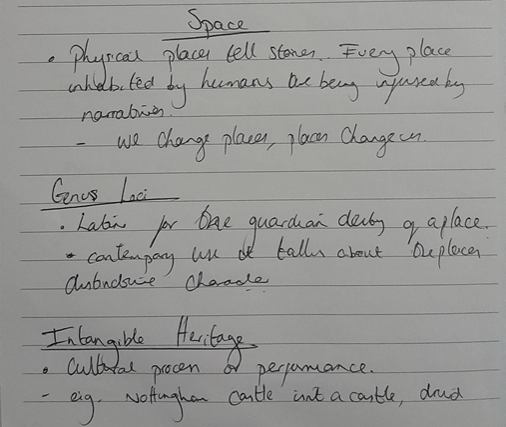 Space
• Physical places tell stories. Every place
inhabited by humans are being infused by
narratives.
- We change places, places change us.
Genus Loci
• Latin for the guardian deity of a place.
• contempary use it talks about the places
distinctive character
Intangible Heritage
• Cultural process or performance.
- e.g. Nottingham Castle isn't a castle,